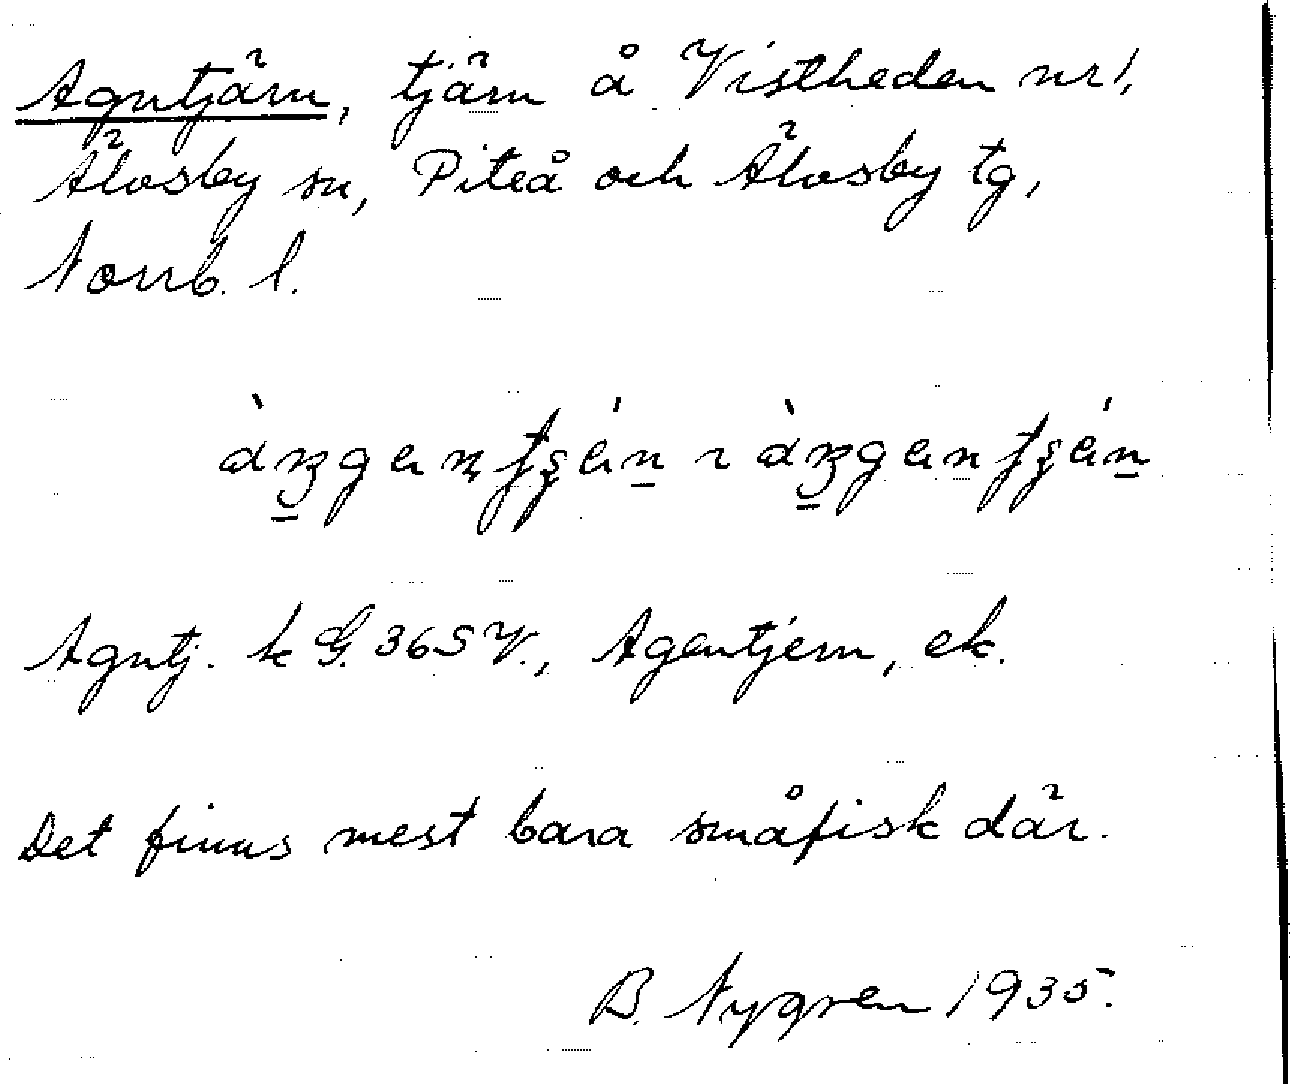 Agntjärn, tjärn å Vistheden nr 1,
Älvsby sn, Piteå och Älvsby tg,
Norrb. l.
Agntj. k G. 36 S V., Agentjern, ek.
Det finns mest bara småfisk där.
B. Nygren 1935.